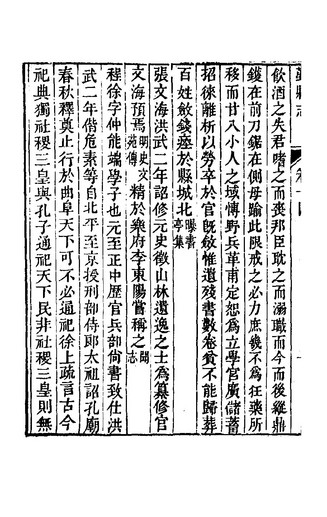 飲酒之失君嗜之而喪邦臣耽之而溺職而今而後雖鼎
鑊在前刀鋸在側毋踰此限戒之必力庶幾不為狂藥所
移而廿八小人之域慱野兵革甫定恕為立學官廣儲蓄
招徠離析以勞卒於官旣斂惟遺殘書數卷貧不能歸葬
百姓斂錢塟於縣城北曝書亭集
張文海洪武二年詔修元史徵山林遺逸之士為纂修官
文海預焉明史文苑傳精於樂府李東陽嘗稱之聞志
程徐字仲能端學子也元至正中歷官兵部尚書致仕洪
武二年偕危素等自北平至京授刑部侍郎太祖詔孔廟
春秋釋奠止行於曲阜天下可不必通祀徐上疏言古今
祀典獨社稷三皇與孔子通祀天下民非社稷三皇則無